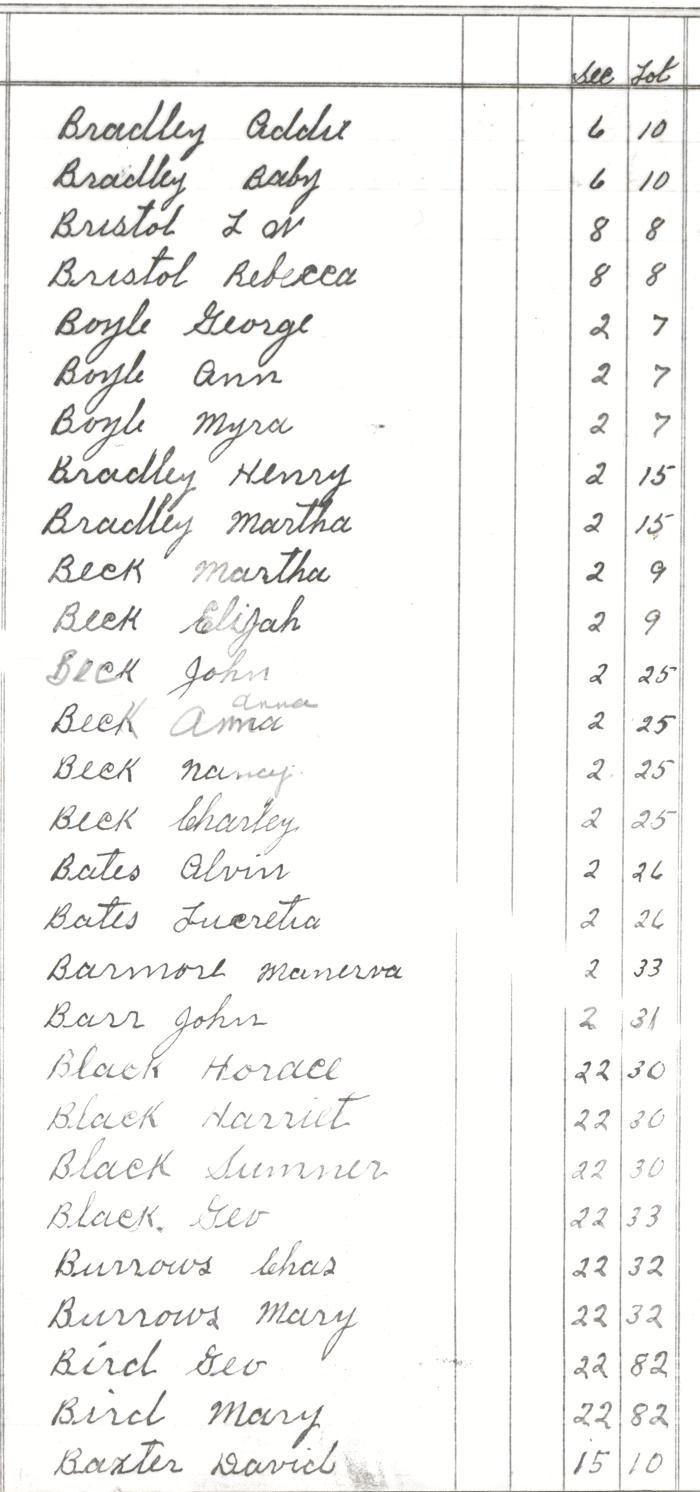 Sec Lot
Bradley Addie 6 10
Bradley Baby 6 10
Bristol L W 8 8
Bristol Rebecca 8 8
Boyle George 2 7
Boyle Ann 2 7
Boyle Myra 2 7
Bradley Henry 2 15
Bradley Martha 2 15
Beck Martha 2 9
Beck Elijah 2 9
Beck John 2 25
Anna
Beck Anna 2 25
Beck Nancy 2 25
Beck Charley 2 25
Bates Alvin 2 26
Bates Lucretia 2 26
Barmore Manerva 2 33
Barr John 2 31
Black Horace 22 30
Black Harriet 22 30
Black Sumner 22 30
Black. Geo 22 33
Burrows Chas 22 32
Burrows Mary 22 32
Bird Geo 22 82
Bird Mary 22 82
Baxter David 15 10